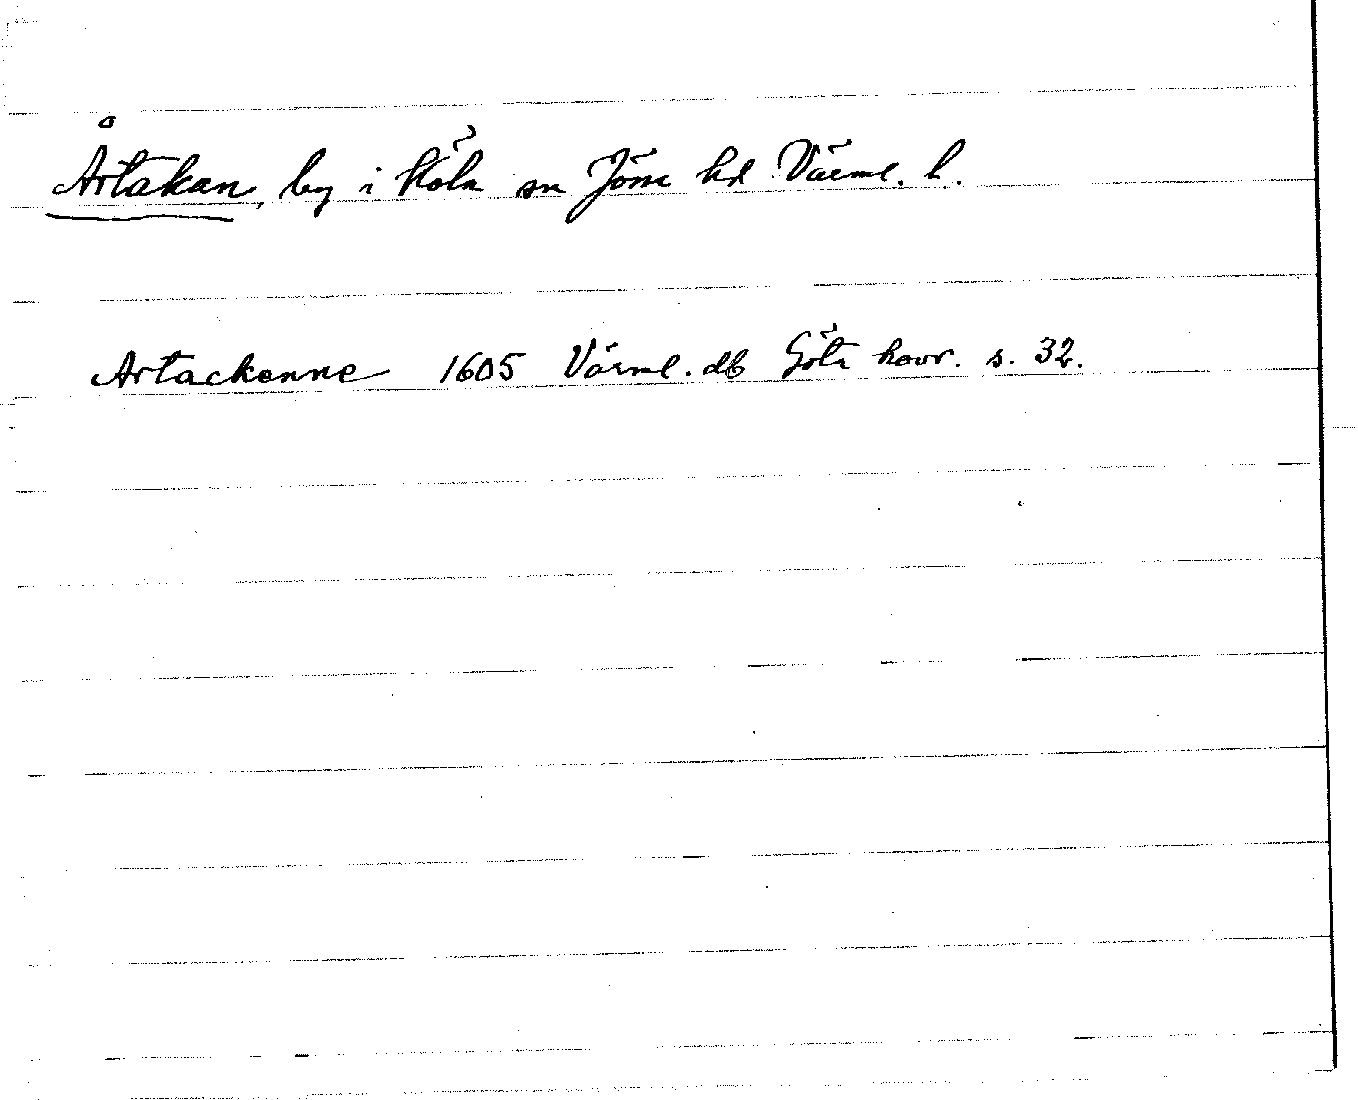 Årtakan, by i Köla sn Jösse hd Värml. l.
Artackenne 1605 Värml. db Göta hovr. s. 32.